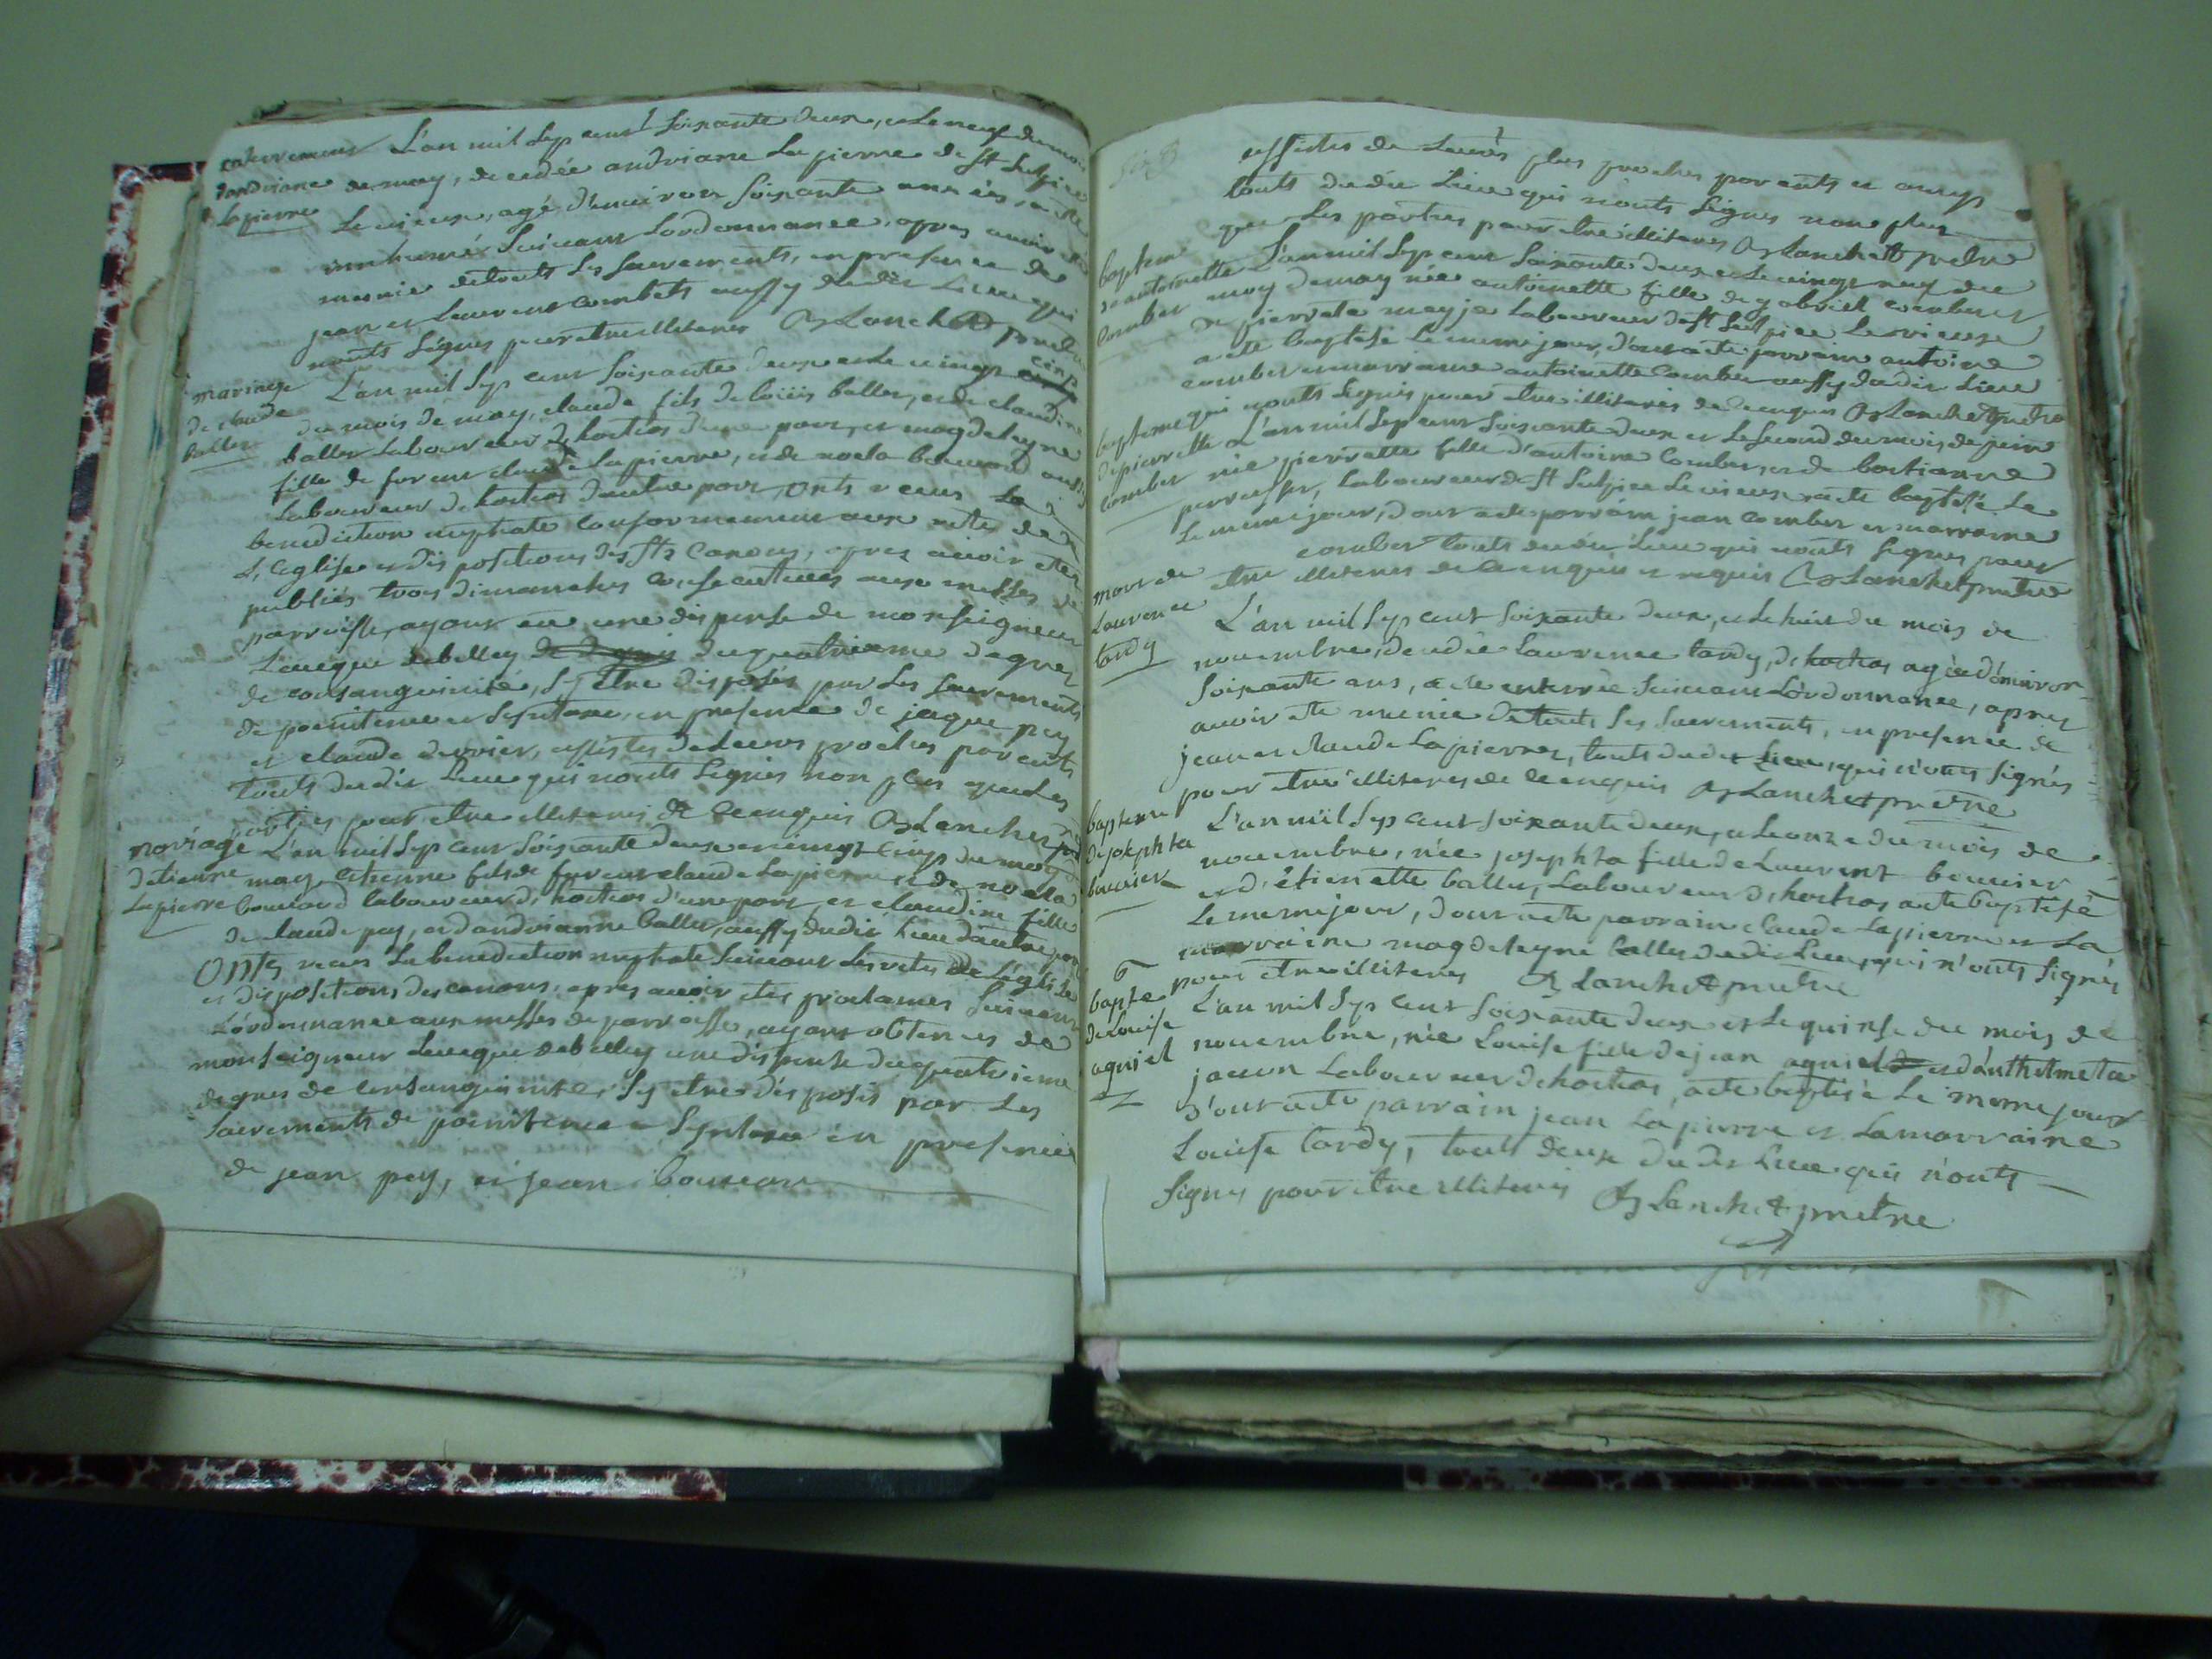 enterrement
dandriane
Lapierre
L'an mil sep cent soixante deux, et le neuf du mois
de may, decedée andriane Lapierre de st Sulpice
Le vieux, agé d'environ soixante années, a été
inhumé suivant Lordonnance, apres avoir été
munie de touts Les sacrements, en presence de
jean et Laurent combet aussy dudit Lieu qui
nonts signés pour etre illiteres Blanchet pretre
mariage
de claude
ballet
L'an mil sep cent soixante deux et le vingt cinq
du mois de may, claude fils de loüis ballet, et de claudine
ballet Laboureur d'hostias d'une part, et magdeleyne
fille de feu claude Lapierre, et de noela bouvard aussy
Laboureur d'hostias d'autre part, onts receus La
benediction nuptiale conformement aux rites de
L'eglise et dispositions des sts canons, apres avoir etes
publiés trois dimanches consecutives aux messes de
parroisse, ayant eu une dispense de monseigneur
Leveque de belley du quatrieme degrez
de consanguinité, s'y etre disposés par Les sacrements
de poenitence et en presence de jaque pey
et claude assistes de Leurs proches parents
touts dudit Lieu qui nonts signés non plus que Les
parties pour etre illiteres de ce enquis Blanchet
mariage
detienne
Lapierre
L'an mil sep cent soixante deux et vingt cinq du moy
may, etienne fils de feu claude Lapierre et de noela
bouvard laboureur d'hostias d'une part, et claudine fille
de claude pey, et dandrianne ballet, aussy dudit Lieu d'autre part
onts receus La benediction nuptiale suivant Les rites de L'eglise
et dispositions des canons, apres avoir etes proclamés suivant
L'ordonnance aux messes de parroisse, ayant obtenus de
monseigneur Leveque de belley une dispense du quatrieme
degres de consanguinité, s'y etre disposés par Les
sacrements de poenitence en presence
de jean pey, et jean
assistes de Leurs plus proches parents et amys
touts dudit Lieu qui nonts signes non plus
que Les parties pour etre illiteres Blanchet pretre
bapteme
de antoinette
combet
L'an mil sep cent soixante deux et le vingt neuf du
moy de may née antoinette fille de gabriel combet et
de pierrete meyja Laboureur de st Sulpice Le vieux
a ete baptisé Le meme jour, dont a ete parrain antoine
combet et marraine antoinette combet aussy dudit Lieu
qui nonts signés pour etre illiteres de ce enquis Blanchet pretre
bapteme
de pierrette
combet
L'an mil sep cent soixante deux et Le second du mois de juin
née pierrette fille d'antoine combet, et de bastianne
Laboureur de st Sulpice Le vieux a ete baptisé Le
Le meme jour, dont a ete parrain jean combet et marraine
combet touts dudit Lieu qui nonts signes pour
etre illiteres de ce enquis et requis Blanchet pretre
mort de
Laurence
tardy
L'an mil sep cent soixante deux, et le huit du mois de
novembre, decedée Laurence tardy, d'hostias agée d'environ
soixante ans, a ete enterrée suivant Lordonnance, apres
avoir ete munie de touts Les sacrements, en presence de
jean et claude Lapierre, touts dudit Lieu, qui n'onts signés
pour etre illiteres de ce enquis Blanchet pretre
bapteme
de josephta
bouvier
L'an mil sep cent soixante deux, et le onze du mois de
novembre, née josephta fille de Laurent bouvier
et d'étienette ballet, Laboureur d'hostias a ete baptisé
Le meme jour, dont a ete parrain claude Lapierre et La
marraine magdeleyne ballet dudit Lieu, qui n'onts signés
pour etre illiteres Blanchet pretre
6
bapte
de Louise
agniel
L'an mil sep cent soixante deux et Le quinse du mois de
novembre, née Louise fille de jean agniel et d'anthelmeta
Laboureur d'hostias, a ete baptisé Le meme jour
d'ont a ete parrain jean Lapierre et La marraine
Louise tardy, touts deux dudit Lieu qui n'onts
signés pour etre illiteres Blanchet pretre